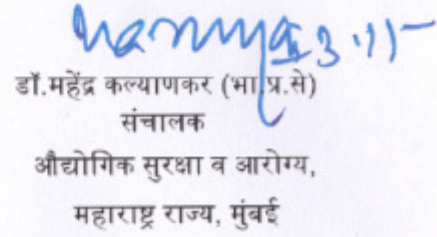 डॉ.महेंद्र कल्याणकर (भा.प्र.से)
संचालक
औद्योगिक सुरक्षा व आरोग्य,
महाराष्ट्र राज्य, मुंबई